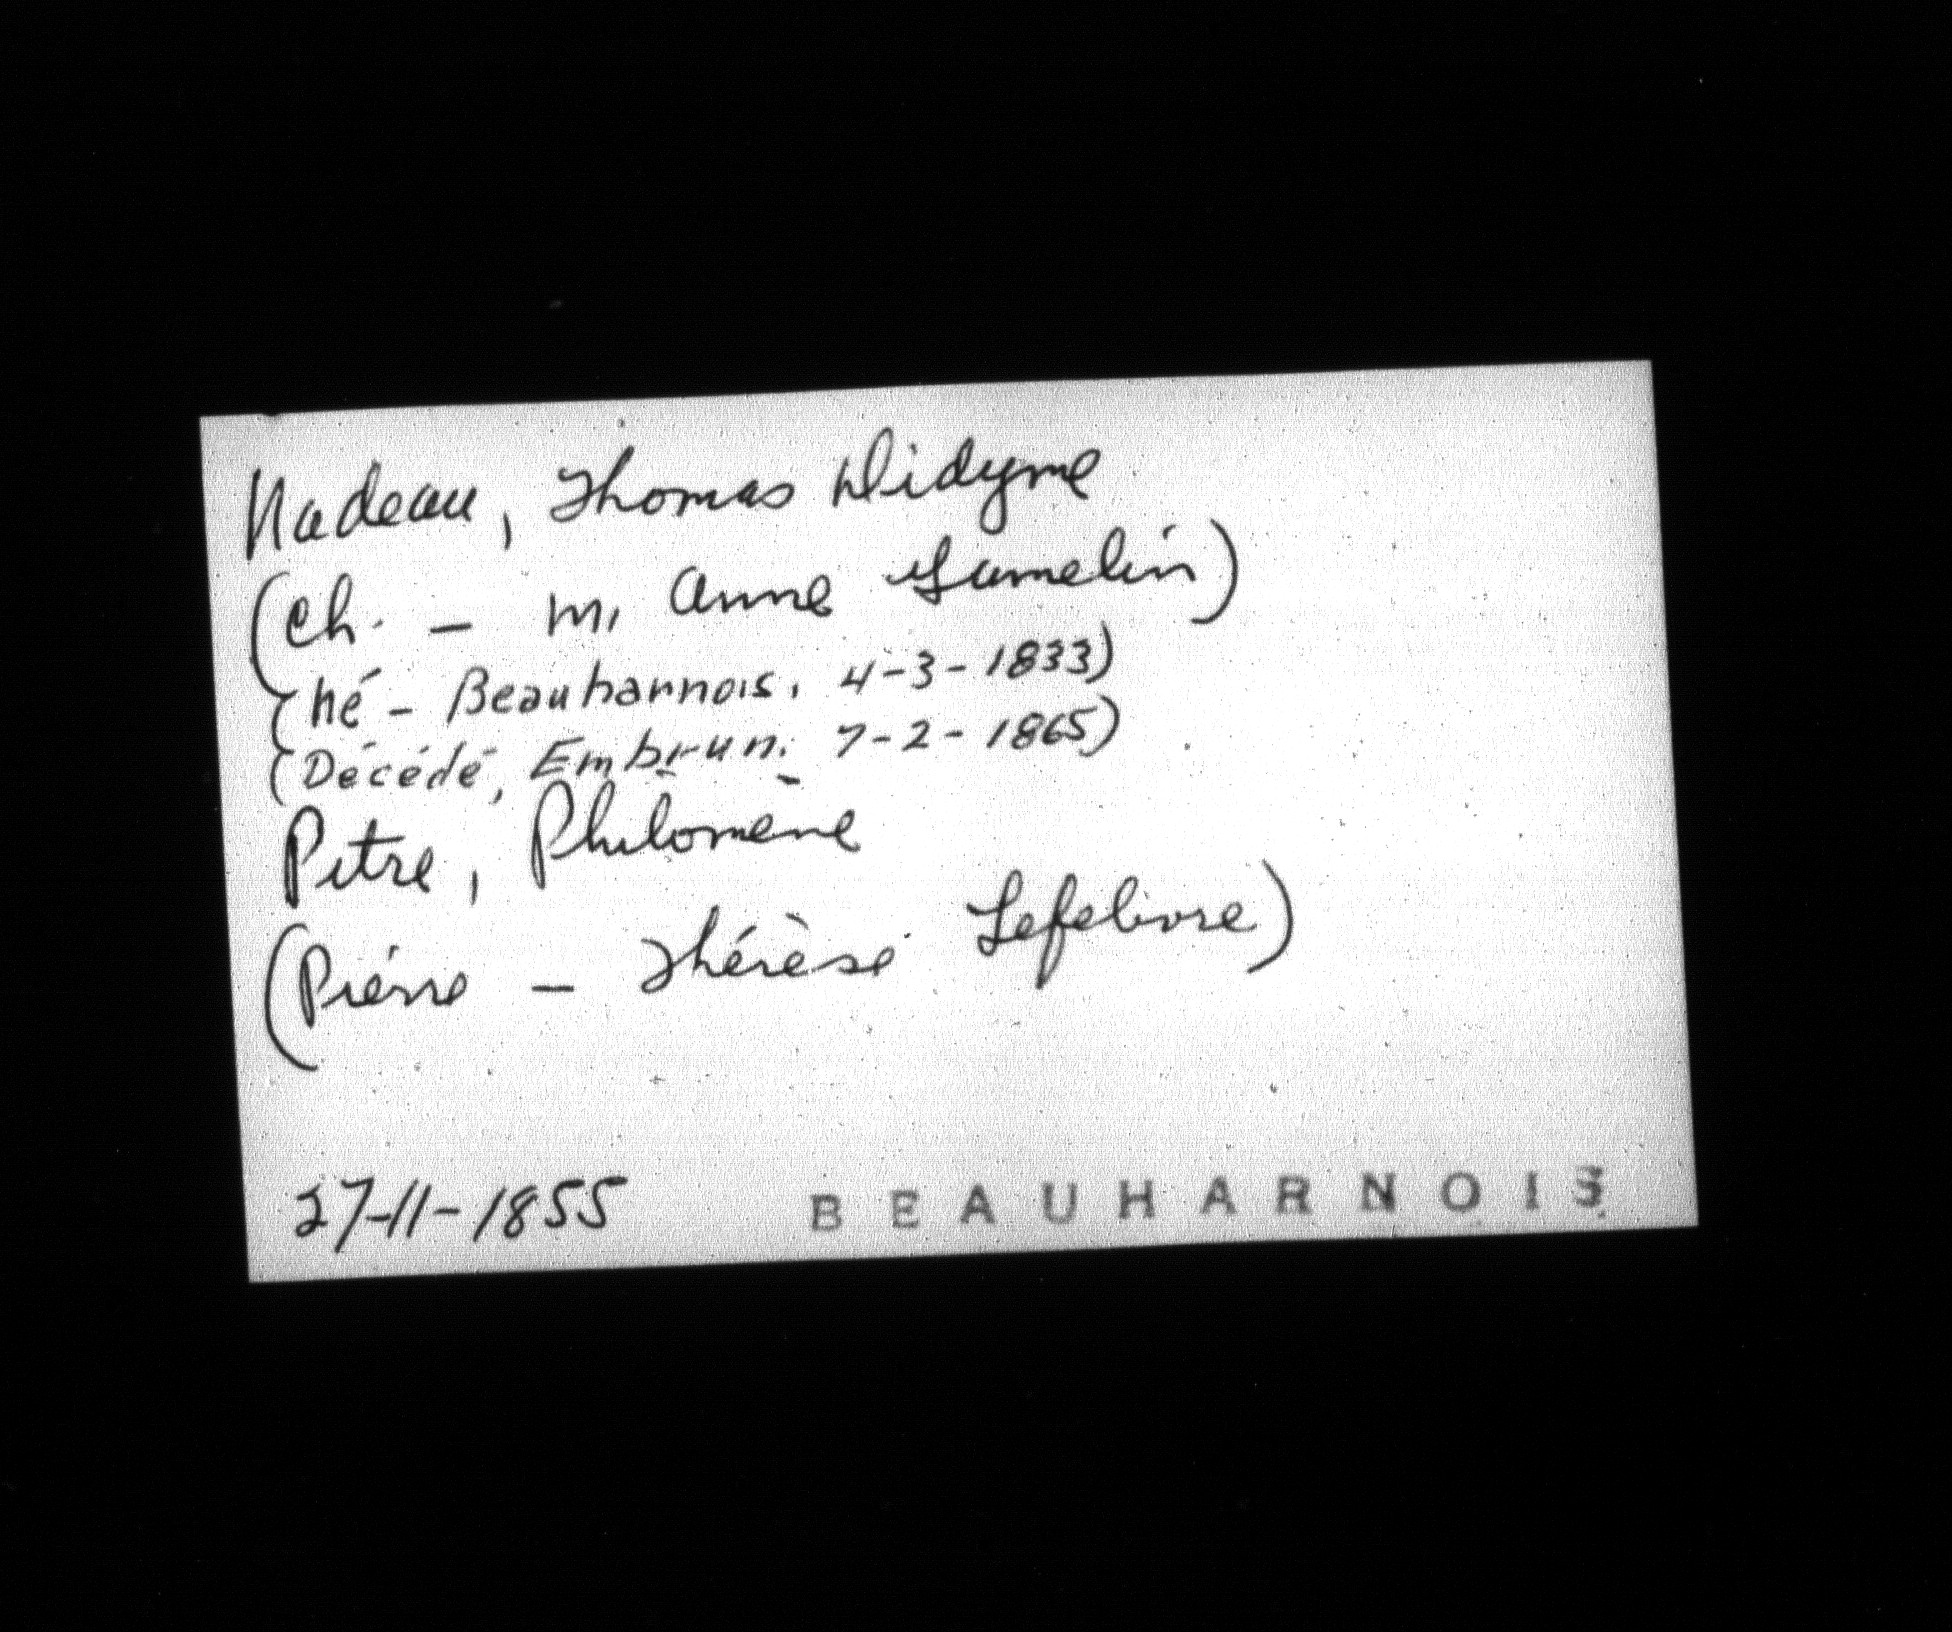 Nadeau, Thomas Didyme
(Ch. - M. Anne Gamelin)
(Né - Beauharnois. 4-3-1833)
(Décédé, Embrun. 7-2-1865)
Pitre, Philomène
(Piérre - Thérèse Lefebvre)
27-11-1855 BEAUHARNOIS